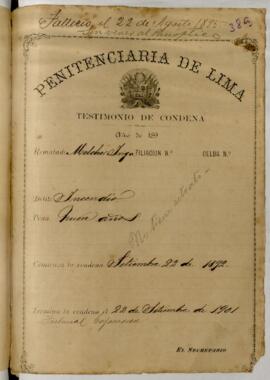 Falleció el 22 de Agosto 1895
386
PENITENCIARIA DE LIMA
TESTIMONIO DE CONDENA
Año de 189
Rematado Melchor FILIACION N.º CELDA N.º
Delito Incendio
Pena nueve años
No tiene retrato
Comienza la condena Setiembre 22 de 1892
Termina la condena el 22 de Setiembre de 1901
Tribunal Cajamarca
EL SECRETARIO